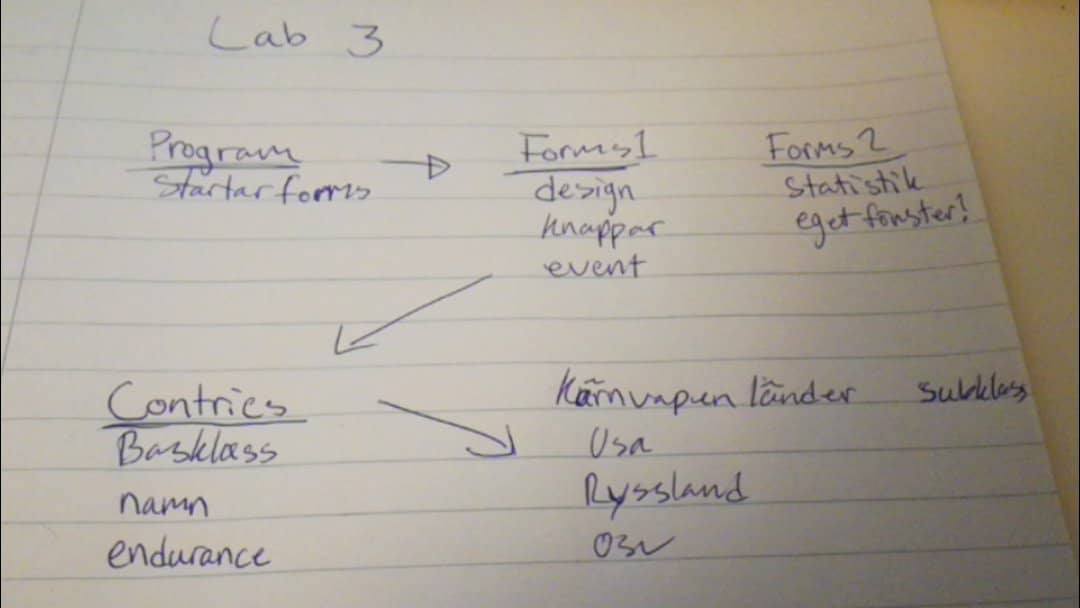 Lab 3
Program
Startar forms
Forms1
design
knappar
event
Forms2
statistik
eget fönster!
Contries
Basklass
namn
endurance
Kärnvapen länder subklass
Usa
Ryssland
osv